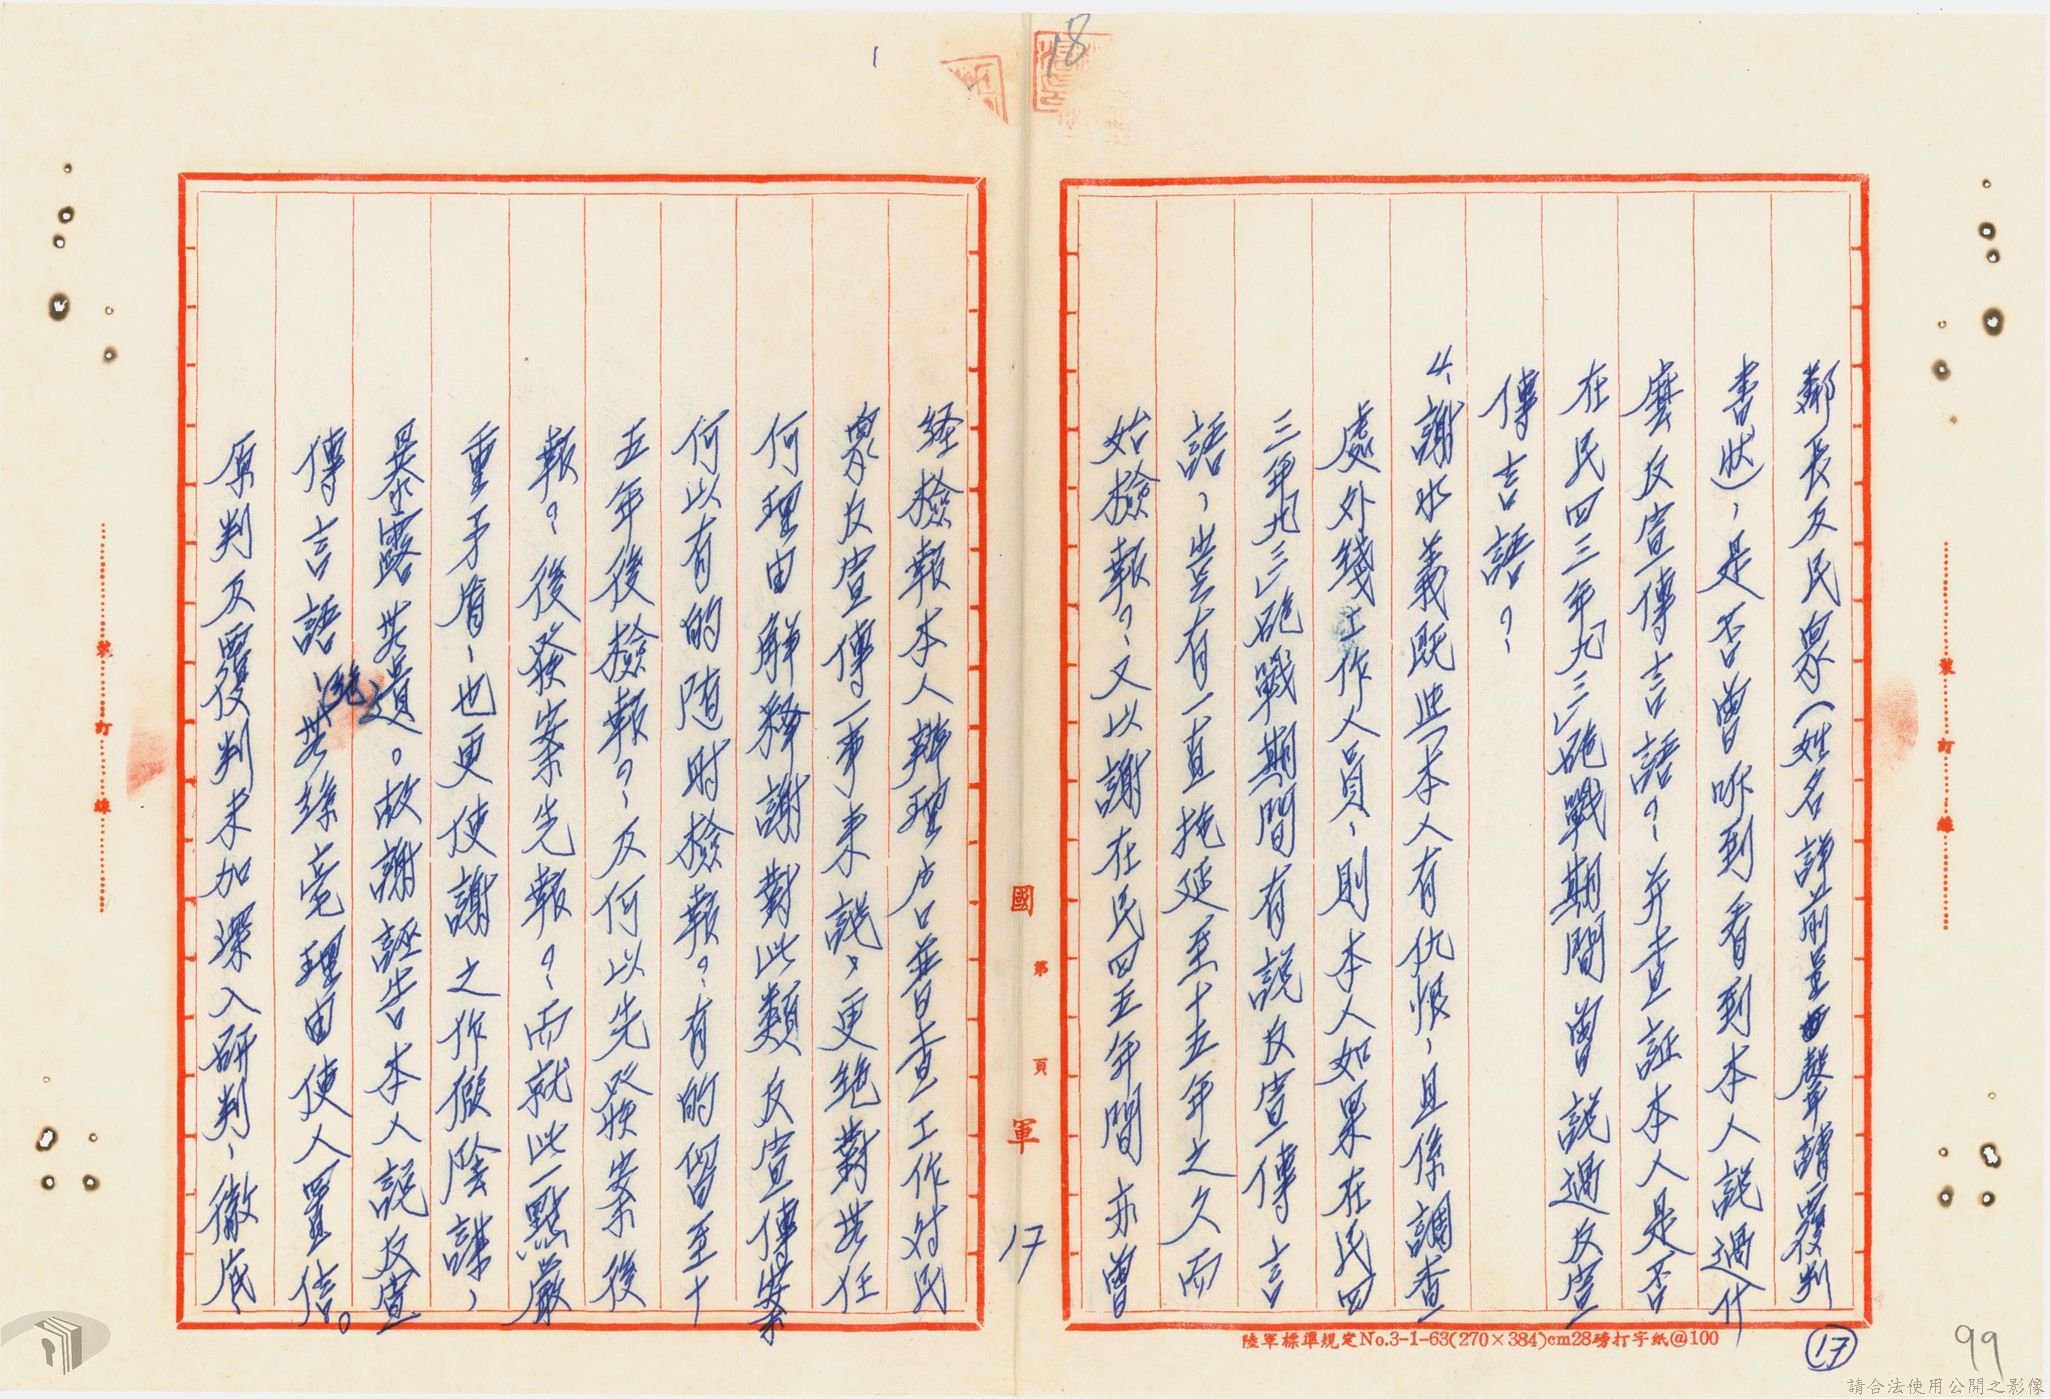 鄰長及民眾(姓名詳前呈聲請覆判
書狀)，是否曾听到看到本人說過什
麼反宣傳言語？，并查証本人是否
在民四三年九三砲戰期間曾說過反宣
傳言語？
4、謝水義既與本人有仇恨，且係調查
處外錢工作人員，則本人如果在民四
三年九三砲戰期間有說反宣傳言
語，豈有一直拖延至十五年之久而
始檢報？，又以謝在民四五年間亦曾
経檢報本人辦理戶口普查工作对民
眾反宣傳一事来說，更絕對無任
何理由解釋謝對此類反宣傳案
何以有的随时檢報？有的留至十
五年後檢報？，及何以先發案後
報？後發案先報？，而就此一點嚴
重矛盾，也更使謝之作假陰謀，
暴露無遺。故謝誣告本人說反宣
傳言語，(絕)無絲毫理由使人置信。
原判及覆判未加深入研判，徹底，
國
第
頁
軍
17
裝
訂
線
裝
訂
線
1
18
陸軍標準規定No.3-1-63(270×384)cm28磅打字紙@100
17
99
請合法使用公開之影像